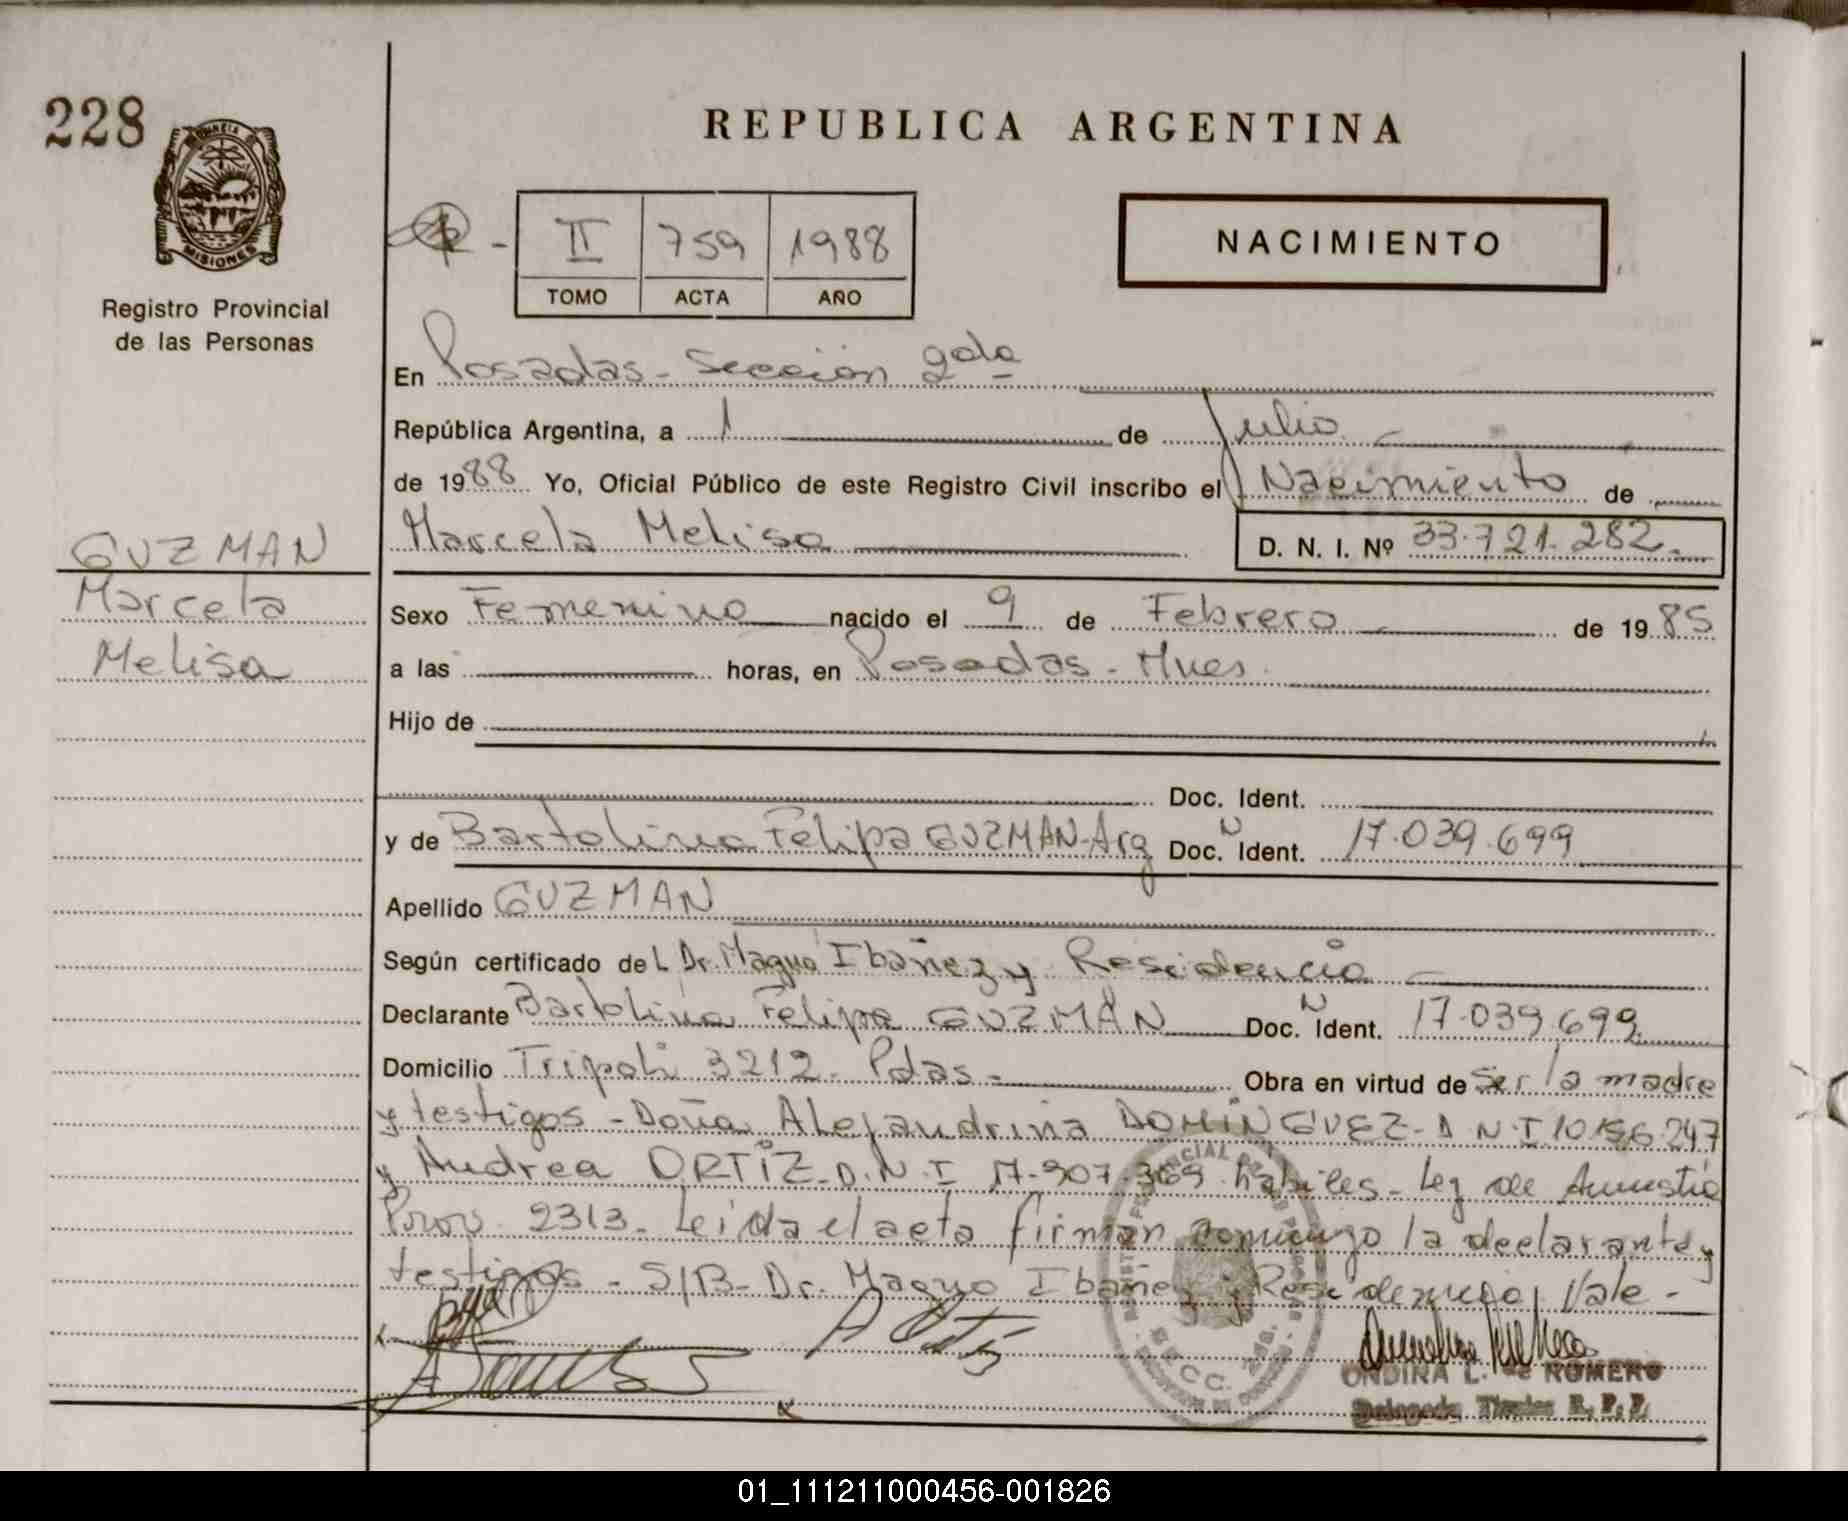 228
REPUBLICA ARGENTINA
MISIONES
Registro Provincial
de las Personas
II 759 1988
TOMO ACTA AÑO
NACIMIENTO
En Posadas - Sección 2da
República Argentina, a 1 de Julio
de 1988 Yo, Oficial Público de este Registro Civil inscribo el Nacimiento de
Marcela Melisa D. N. I. Nº 33.721.282.
GUZMAN
Marcela
Melisa
Sexo Femenino nacido el 9 de Febrero de 1985
a las horas, en Posadas - Mnes.
Hijo de
Doc. Ident.
y de Bartolina Felipa GUZMAN-Arg Doc. N Ident. 17.039.699
Apellido GUZMAN
Según certificado del Dr. Magno Ibañez y Residencia
Declarante Bartolina Felipa GUZMAN Doc. N Ident. 17.039.699
Domicilio Tripoli 3212 - Pdas - Obra en virtud de ser la madre
y testigos - Doña Alejandrina DOMINGUEZ - D.N.I 10.156.247
y Andrea ORTIZ - D.N.I 17.907.369 habiles - Ley de Amnistia
Prov. 2313 - Leida el acta firman conmigo la declarante y
testigos - S/B - Dr. Magno Ibañez y Residencia, Vale -
ONDINA L. de ROMERO
Delegada Titular R. P. P.
01_111211000456-001826